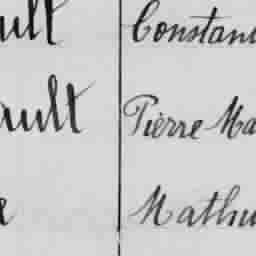 ult Constan
ault Pierre Ma
e Mathu